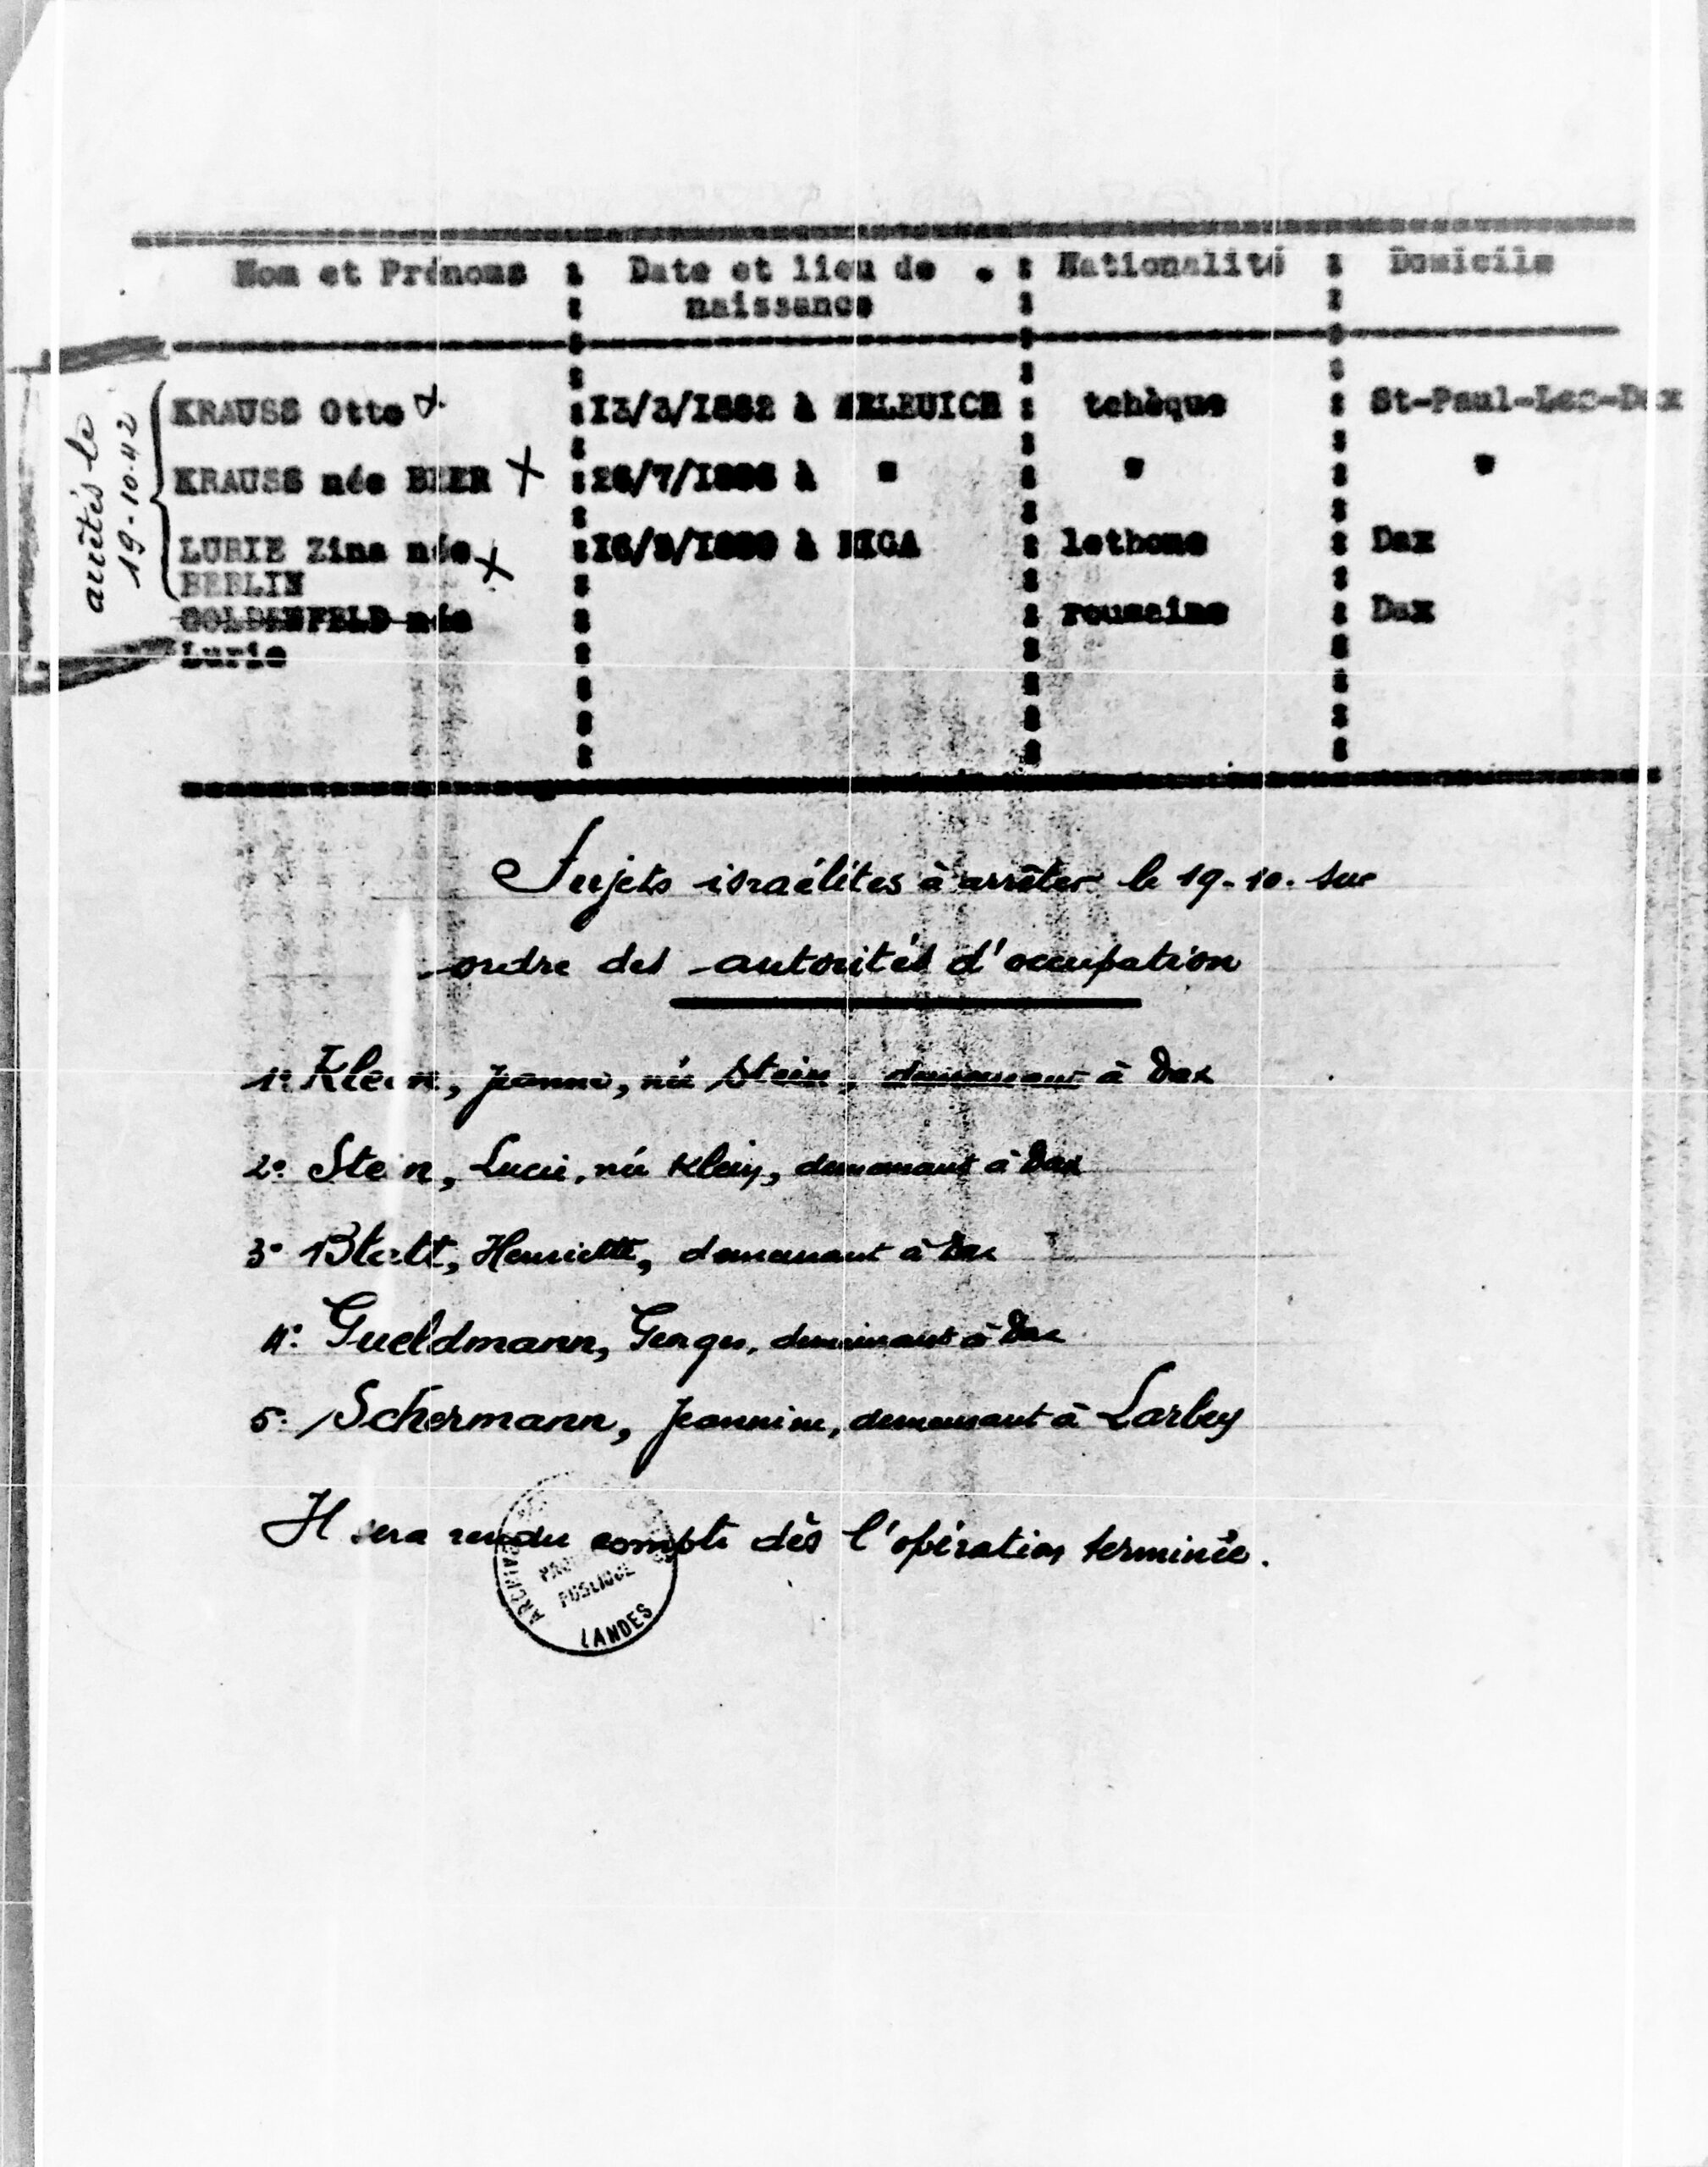 Nom et Prénoms : Date et lieu de . : Nationalité : Domicile
naissance
arrêtés le
19-10-42
KRAUSS Otto x : 13/3/1882 à : tchèque : St-Paul-Lec-Dax
KRAUSS née BEER x : 26/7/1896 à " : " : "
LURIE Zina née x : 16/9/1889 à RIGA : lethone : Dax
BERLIN
GOLDENFELD née : roumaine : Dax
Lurie
Sujets israélites à arrêter le 19-10. sur
ordre des autorités d'occupation
1° Klein, Jeanne, née Stein, demeurant à Dax
2° Stein, Lucie, née Klein, demeurant à Dax
3° Blatt, Henriette, demeurant à Dax
4° Gueldmann, Georges, demeurant à Dax
5° Schermann, Jeannine, demeurant à Larbey
Il sera rendu compte dès l'opération terminée.
ARCHIVES
PUBLIQUE
LANDES